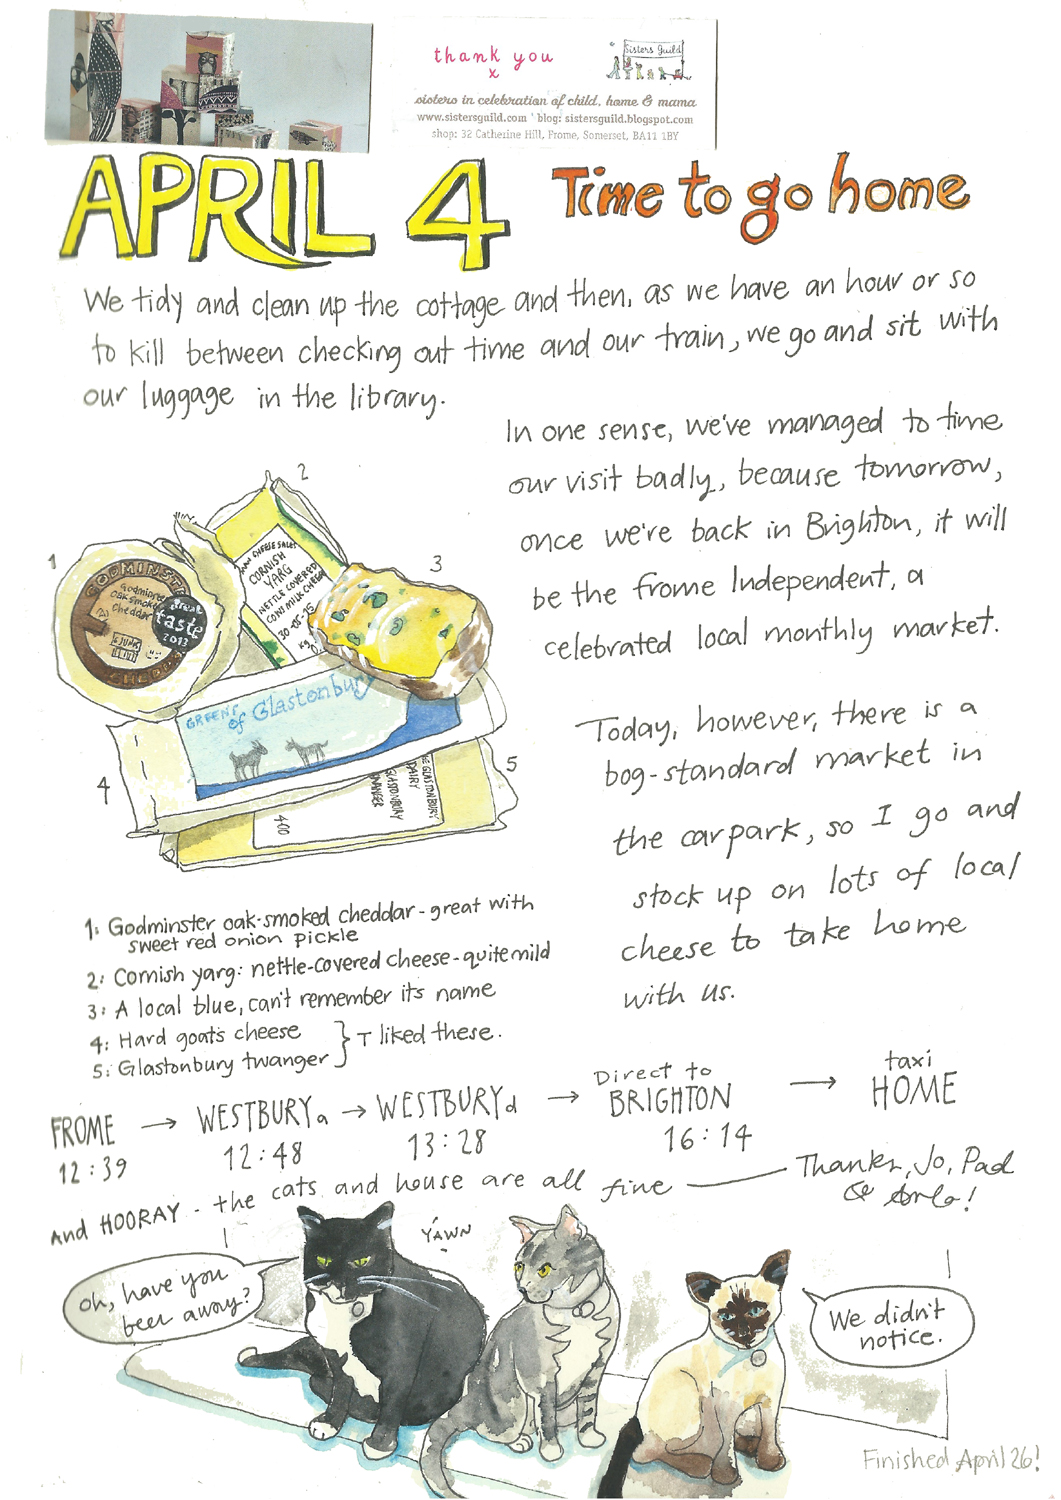 thank you
x
Sisters Guild
sisters in celebration of child, home & mama
www.sistersguild.com ' blog: sistersguild.blogspot.com
shop: 32 Catherine Hill, Frome, Somerset, BA11 1BY
APRIL 4
Time to go home
We tidy and clean up the cottage and then, as we have an hour or so
to kill between checking out time and our train, we go and sit with
our luggage in the library.
In one sense, we've managed to time
our visit badly, because tomorrow,
once we're back in Brighton, it will
be the frome Independent, a
celebrated local monthly market.
Today, however, there is a
bog-standard market in
the carpark, so I go and
stock up on lots of local
cheese to take home
with us.
1
2
3
4
5
GODMINST
Godminster
oak smoked
cheddar
great
taste
2013
CHEDD
CHEESE
CORNISH
YARG
NETTLE COVERED
COWS MILK CHEESE
30-05-15
kg
GREENS
of Glastonbury
GLASTONBURY
DAIRY
GLASTONBURY
TWANGER
400
1: Godminster oak-smoked cheddar - great with
sweet red onion pickle
2: Cornish yarg: nettle-covered cheese - quite mild
3: A local blue, can't remember its name
4: Hard goat's cheese
5: Glastonbury twanger
T liked these.
FROME → WESTBURYa → WESTBURYd → Direct to BRIGHTON → taxi HOME
12:39 12:48 13:28 16:14
And HOORAY - the cats and house are all fine
Thanks, Jo, Pad
& Arlo!
YAWN
Oh, have you
been away?
We didn't
notice.
Finished April 26!